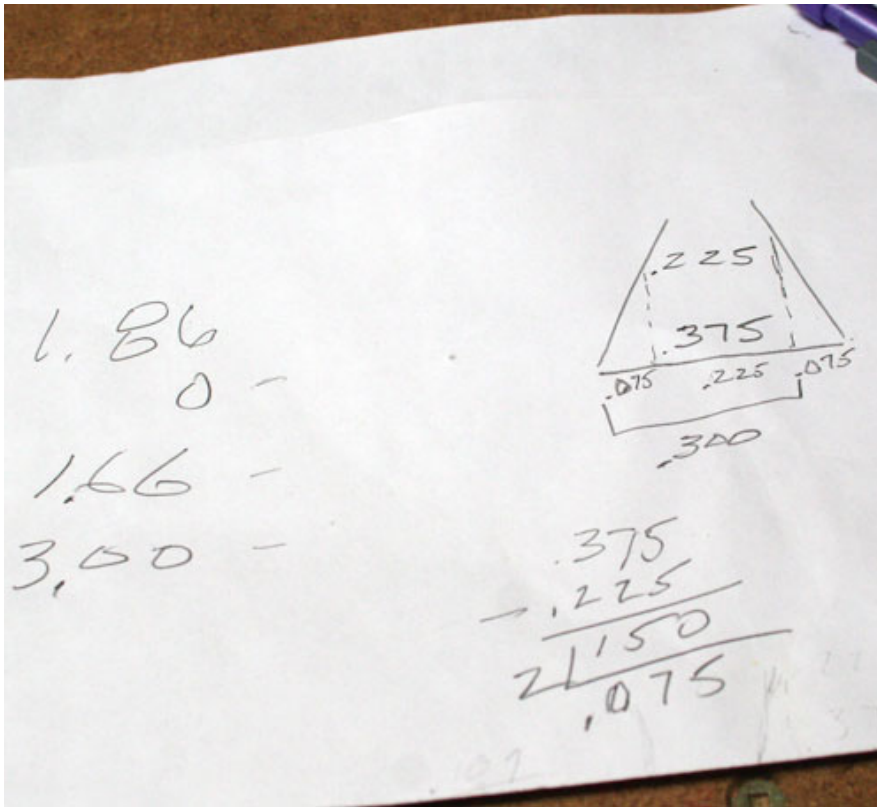 1.86
0 -
1.66 -
3.00 -
.225
.375
.075 .225 .075
.300
.375
- .225
2 150
.075